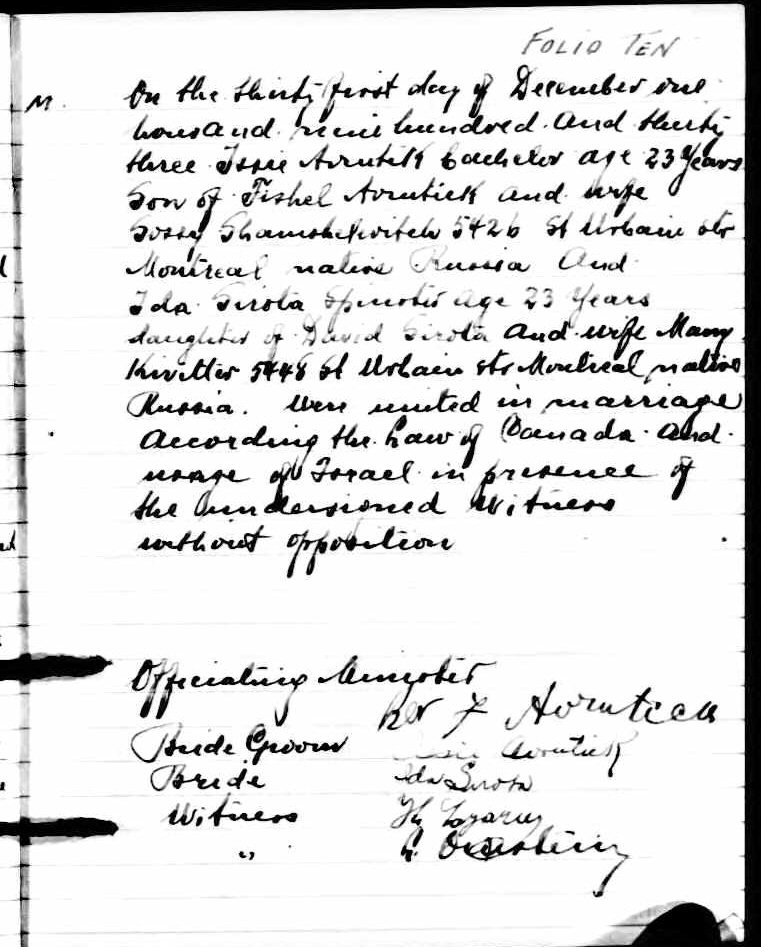 FOLIO TEN
M.
On the thirty first day of December one
housand nine hundred and thirty
three Issie Avrutick bachelor age 23 Years
Son of Fishel Avrutick and wife
Sossy 5426 St Urbain str
Montreal native Russia And
Ida Sirota Spinster age 23 Years
daughter of David Sirota and wife Many
5448 St Urbain str Montreal native
Russia. Were united in marriage
According the Law of Canada and
usage of Israel in presence of
the undersioned Witness
without opposition
Officiating Minister
Rev F Avrutick
Bride Groom Issie Avrutick
Bride Ida Sirota
Witness
"